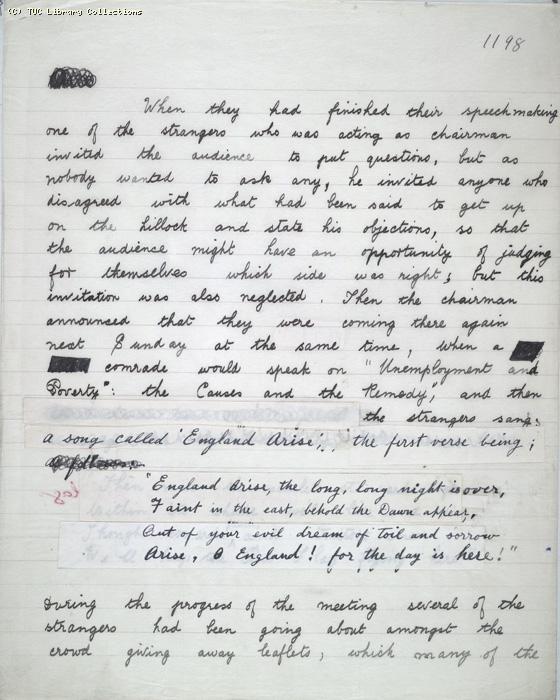 (C) TUC Library Collections
1198
When they had finished their speechmaking
one of the strangers who was acting as chairman
invited the audience to put questions, but as
nobody wanted to ask any, he invited anyone who
disagreed with what had been said to get up
on the hillock and state his objections, so that
the audience might have an opportunity of judging
for themselves which side was right; but this
invitation was also neglected. Then the chairman
announced that they were coming there again
next Sunday at the same time, when a
comrade would speak on "Unemployment and
Poverty": the Causes and the Remedy, and then
the strangers sang:
a song called 'England Arise', the first verse being;
"England Arise, the long, long night is over,
Faint in the east, behold the Dawn appear,
Out of your evil dream of toil and sorrow
Arise, O England! for the day is here!"
During the progress of the meeting several of the
strangers had been going about amongst the
crowd giving away leaflets, which many of the